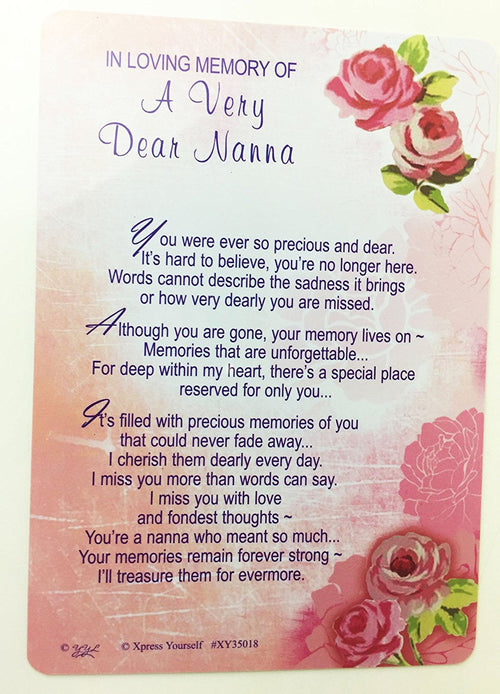 IN LOVING MEMORY OF
A Very
Dear Nanna
You were ever so precious and dear.
It's hard to believe, you're no longer here.
Words cannot describe the sadness it brings
or how very dearly you are missed.
Although you are gone, your memory lives on ~
Memories that are unforgettable...
For deep within my heart, there's a special place
reserved for only you...
It's filled with precious memories of you
that could never fade away...
I cherish them dearly every day.
I miss you more than words can say.
I miss you with love
and fondest thoughts ~
You're a nanna who meant so much...
Your memories remain forever strong ~
I'll treasure them for evermore.
© © Xpress Yourself #XY35018